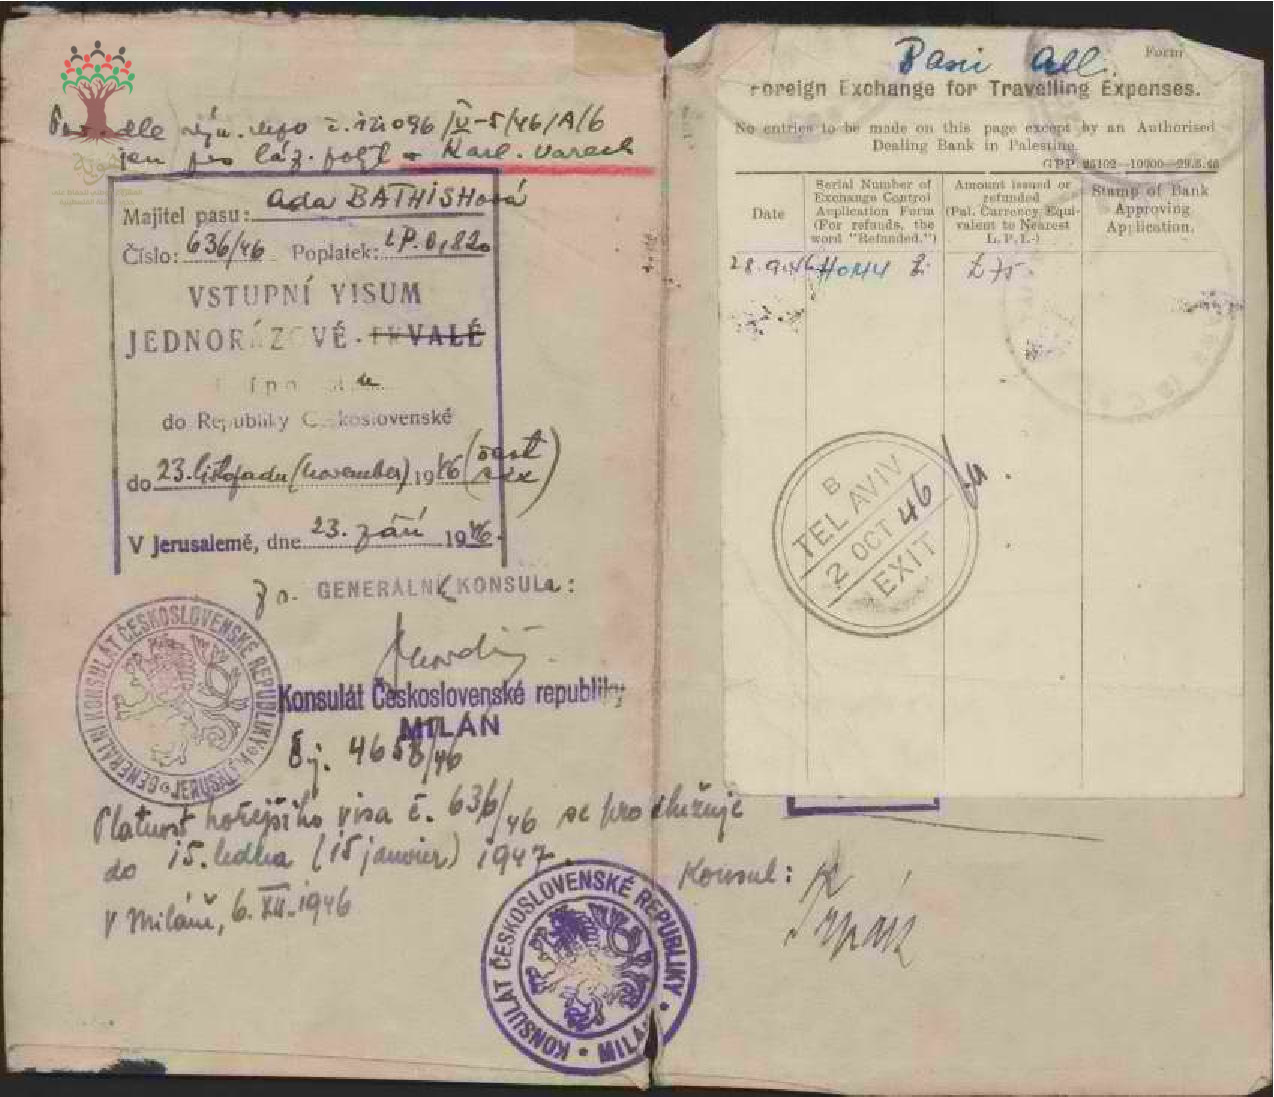 jen pro láz. pobyt - Karl. Varech
Majitel pasu: Ada BATHISHová
Číslo: 636/46 Poplatek: LP. 0,820
VSTUPNÍ VISUM
JEDNORÁZOVÉ - TRVALÉ
do Republiky Československé
do 23. listopadu (november) 1946 (šest
V Jerusalemě, dne 23. září 1946.
GENERÁLNÍ KONSUL:
GENERÁLNÍ KONSULÁT ČESKOSLOVENSKÉ REPUBLIKY
Konsulát Československé republiky
MILÁN
Čj. 4658/46
Platnost hořejšího visa č. 636/46 se prodlužuje
do 15. ledna (15 janvier) 1947.
V Miláně, 6.XII.1946
Konsul:
KONSULÁT ČESKOSLOVENSKÉ REPUBLIKY • MILÁN •
Form
Foreign Exchange for Travelling Expenses.
No entries to be made on this page except by an Authorised
Dealing Bank in Palestine.
GPP 26102—10000—29.5.46
Date
Serial Number of
Exchange Control
Application Form
(For refunds, the
word "Refunded.")
Amount issued or
refunded
(Pal. Currency Equi-
valent to Nearest
L.P.1.-)
Stamp of Bank
Approving
Application.
28.9.46 £75.
B
TEL AVIV
2 OCT 46
EXIT